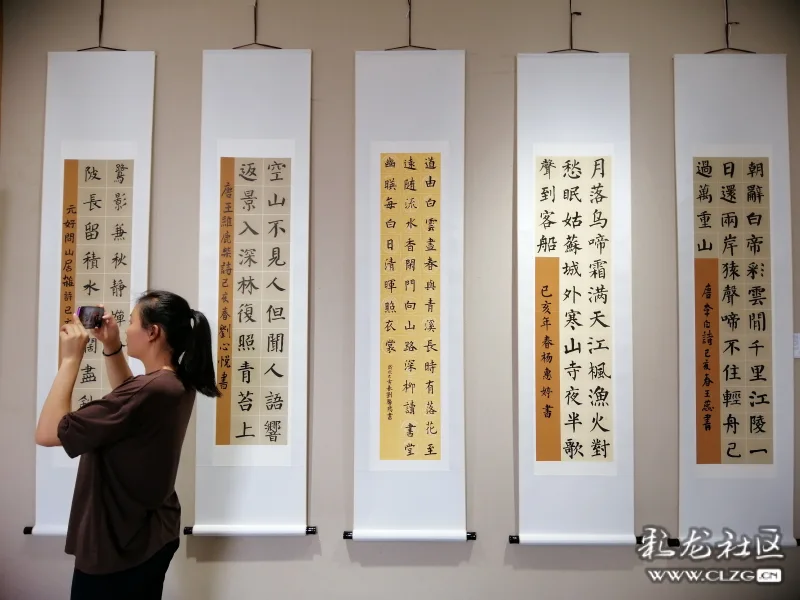 鷺影兼秋靜蟬
陂長留積水
闊盡
元好問山居雜詩己
空山不見人但聞人語響
返景入深林復照青苔上
唐王維鹿柴詩己亥春劉心悅書
道由白雲盡春與青溪長時有落花至
遠隨流水香閑門向山路深柳讀書堂
幽暎每白日清暉照衣裳
月落烏啼霜满天江楓漁火對
愁眠姑蘇城外寒山寺夜半歌
聲到客船
己亥年春杨惠婷書
朝辭白帝彩雲間千里江陵一
日還兩岸猿聲啼不住輕舟已
過萬重山
唐李白詩己亥春王蕊書
彩龙社区
WWW.CLZG.CN